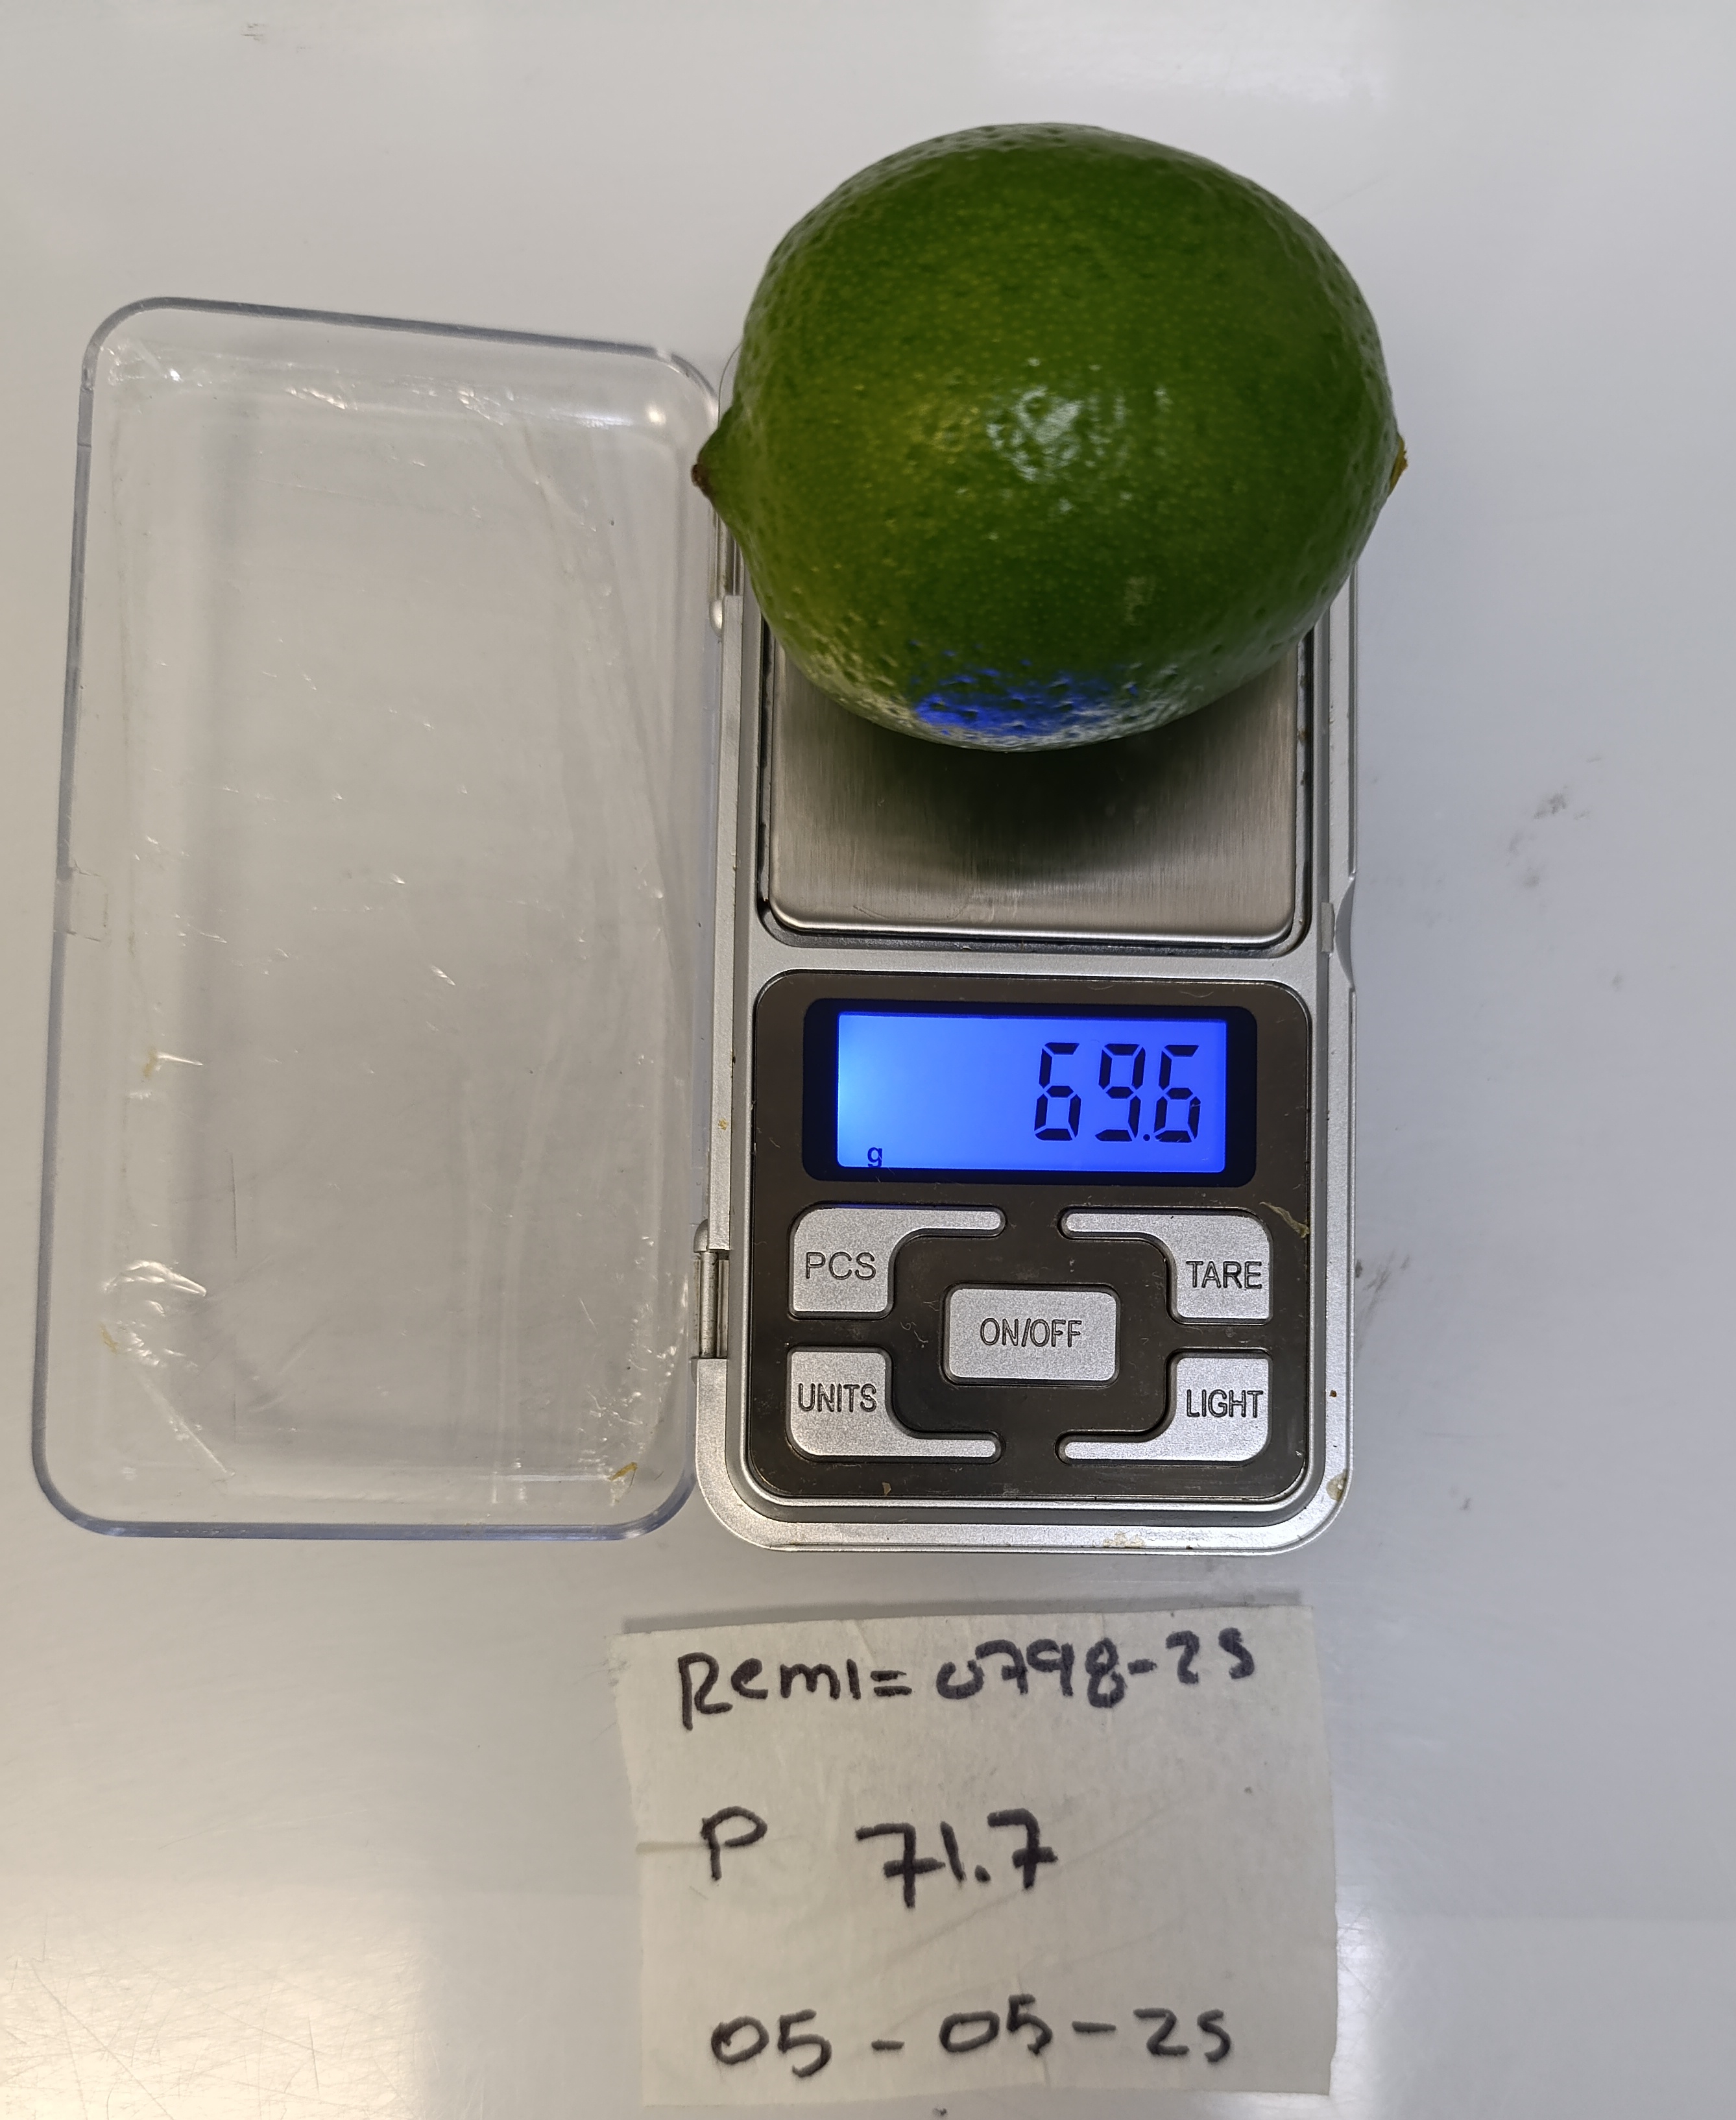 69.6
g
PCS
TARE
ON/OFF
UNITS
LIGHT
Remi=0798-25
P 71.7
05-05-25